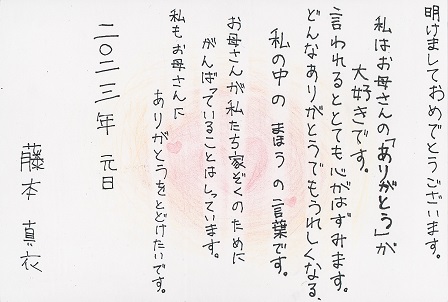 明けましておめでとうございます。
私はお母さんの「ありがとう」が
大好きです。
言われるととても心がはずみます。
どんなありがとうでもうれしくなる、
私の中のまほうの言葉です。
お母さんが私たち家ぞくのために
がんばっていることはしっています。
私もお母さんに
ありがとうをとどけたいです。
二〇二三年 元日
藤本 真衣